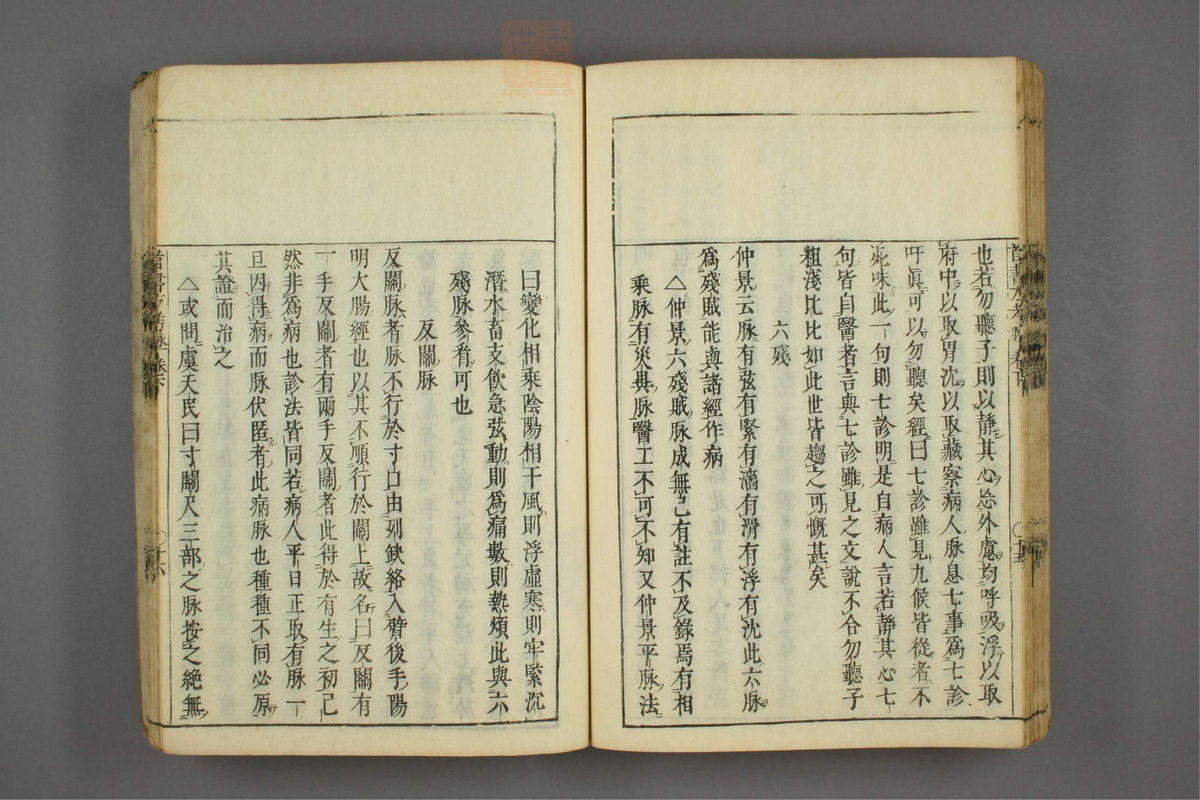 也若勿聽子則以靜其心忘外慮均呼吸浮以取
府中以取胃沈以取藏察病人脉息七事爲七診
吁眞可以勿聽矣經曰七診雖見九候皆從者不
死味此一句則七診明是自病人言若靜其心七
句皆自醫者言與七診雖見之文說不合勿聽子
粗淺比比如此世皆趨之可慨甚矣
六殘
仲景云脉有弦有緊有濇有滑有浮有沈此六脉
爲殘賊能與諸經作病
△仲景六殘賊脉成無己有註不及錄焉有相
乘脉有災異脉醫工不可不知又仲景平脉法
十五
曰變化相乘陰陽相干風則浮虛寒則牢緊沉
潛水畜支飲急弦動則爲痛數則熱煩此與六
殘脉參看可也
反關脉
反關脉者脉不行於寸口由列缺絡入臂後手陽
明大腸經也以其不順行於關上故名曰反關有
一手反關者有兩手反關者此得於有生之初已
然非爲病也診法皆同若病人平日正取有脉一
旦因得病而脉伏匿者此病脉也種種不同必原
其證而治之
△或問虞天民曰寸關尺三部之脉按之絶無
十六